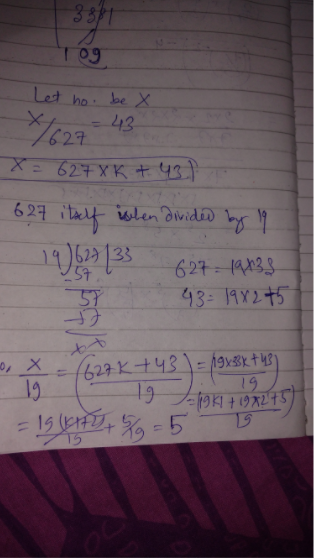 3391
109
Let no. be X
X/627 = 43
X = 627 X K + 43
627 itself when divided by 19
19)627(33
-57
57
-57
XX
627 = 19X33
43 = 19X2+5
X/19 = (627K+43/19) = (19X33K+43/19)
= (19K1+19X2+5)/19
= 19(K1+2)/19 + 5/19 = 5